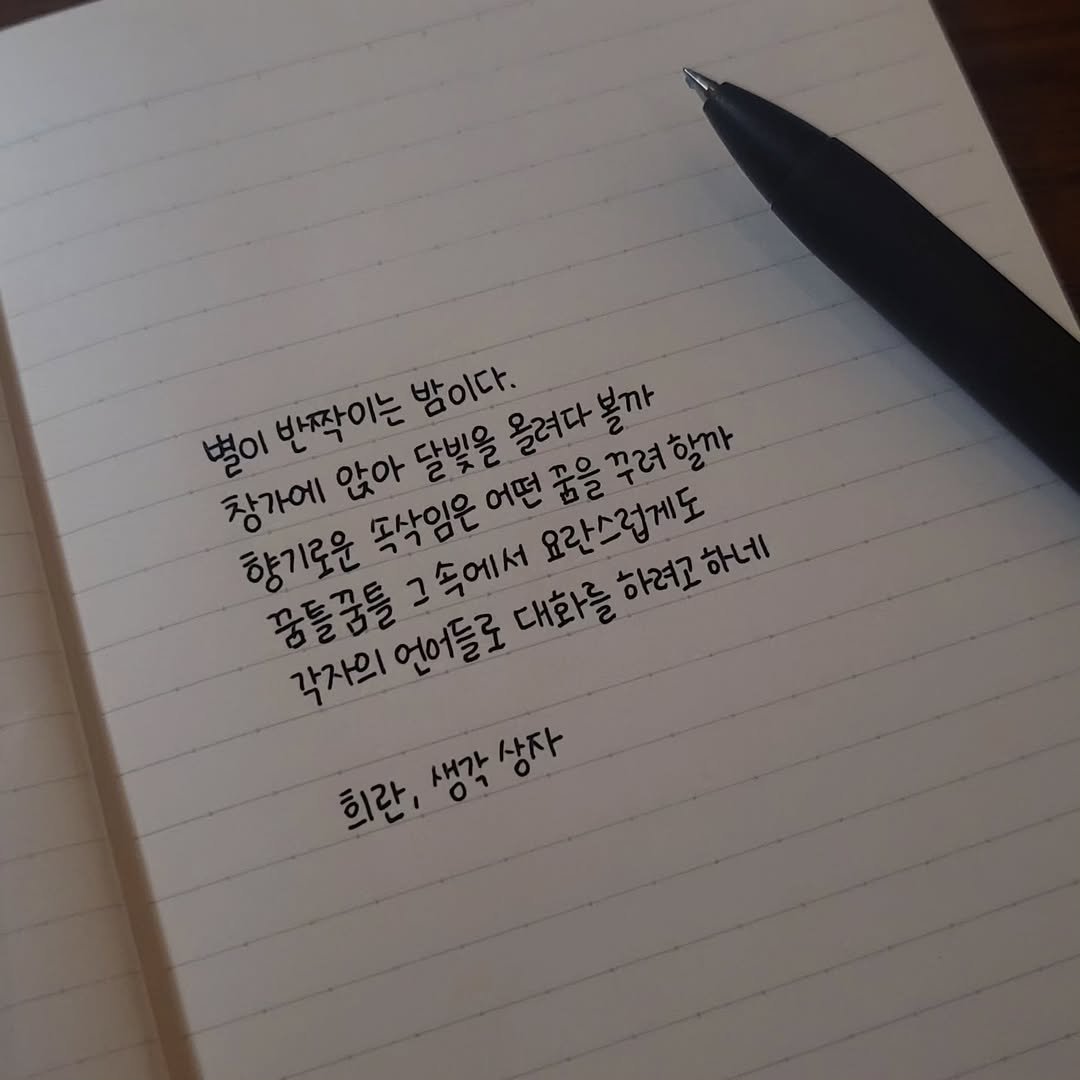 별이 반짝이는 밤이다.
창가에 앉아 달빛을 올려다 볼까
향기로운 속삭임은 어떤 꿈을 꾸려 할까
꿈틀꿈틀 그 속에서 요란스럽게도
각자의 언어들로 대화를 하려고 하네
희란, 생각 상자